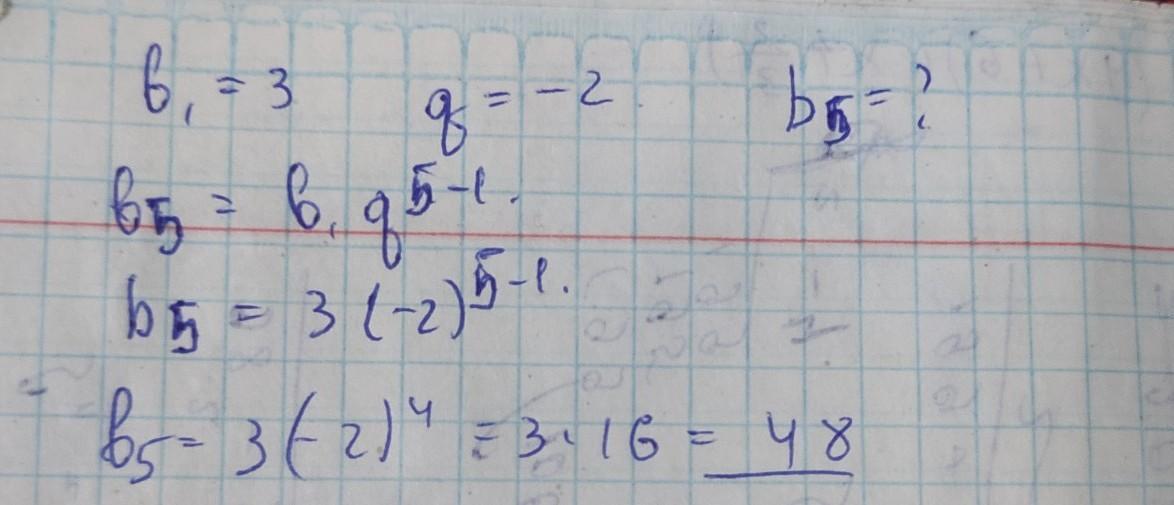 b₁ = 3 q = -2 b₅ = ?
b₅ = b₁ q⁵⁻¹.
b₅ = 3 (-2)⁵⁻¹.
b₅ = 3(-2)⁴ = 3 · 16 = 48